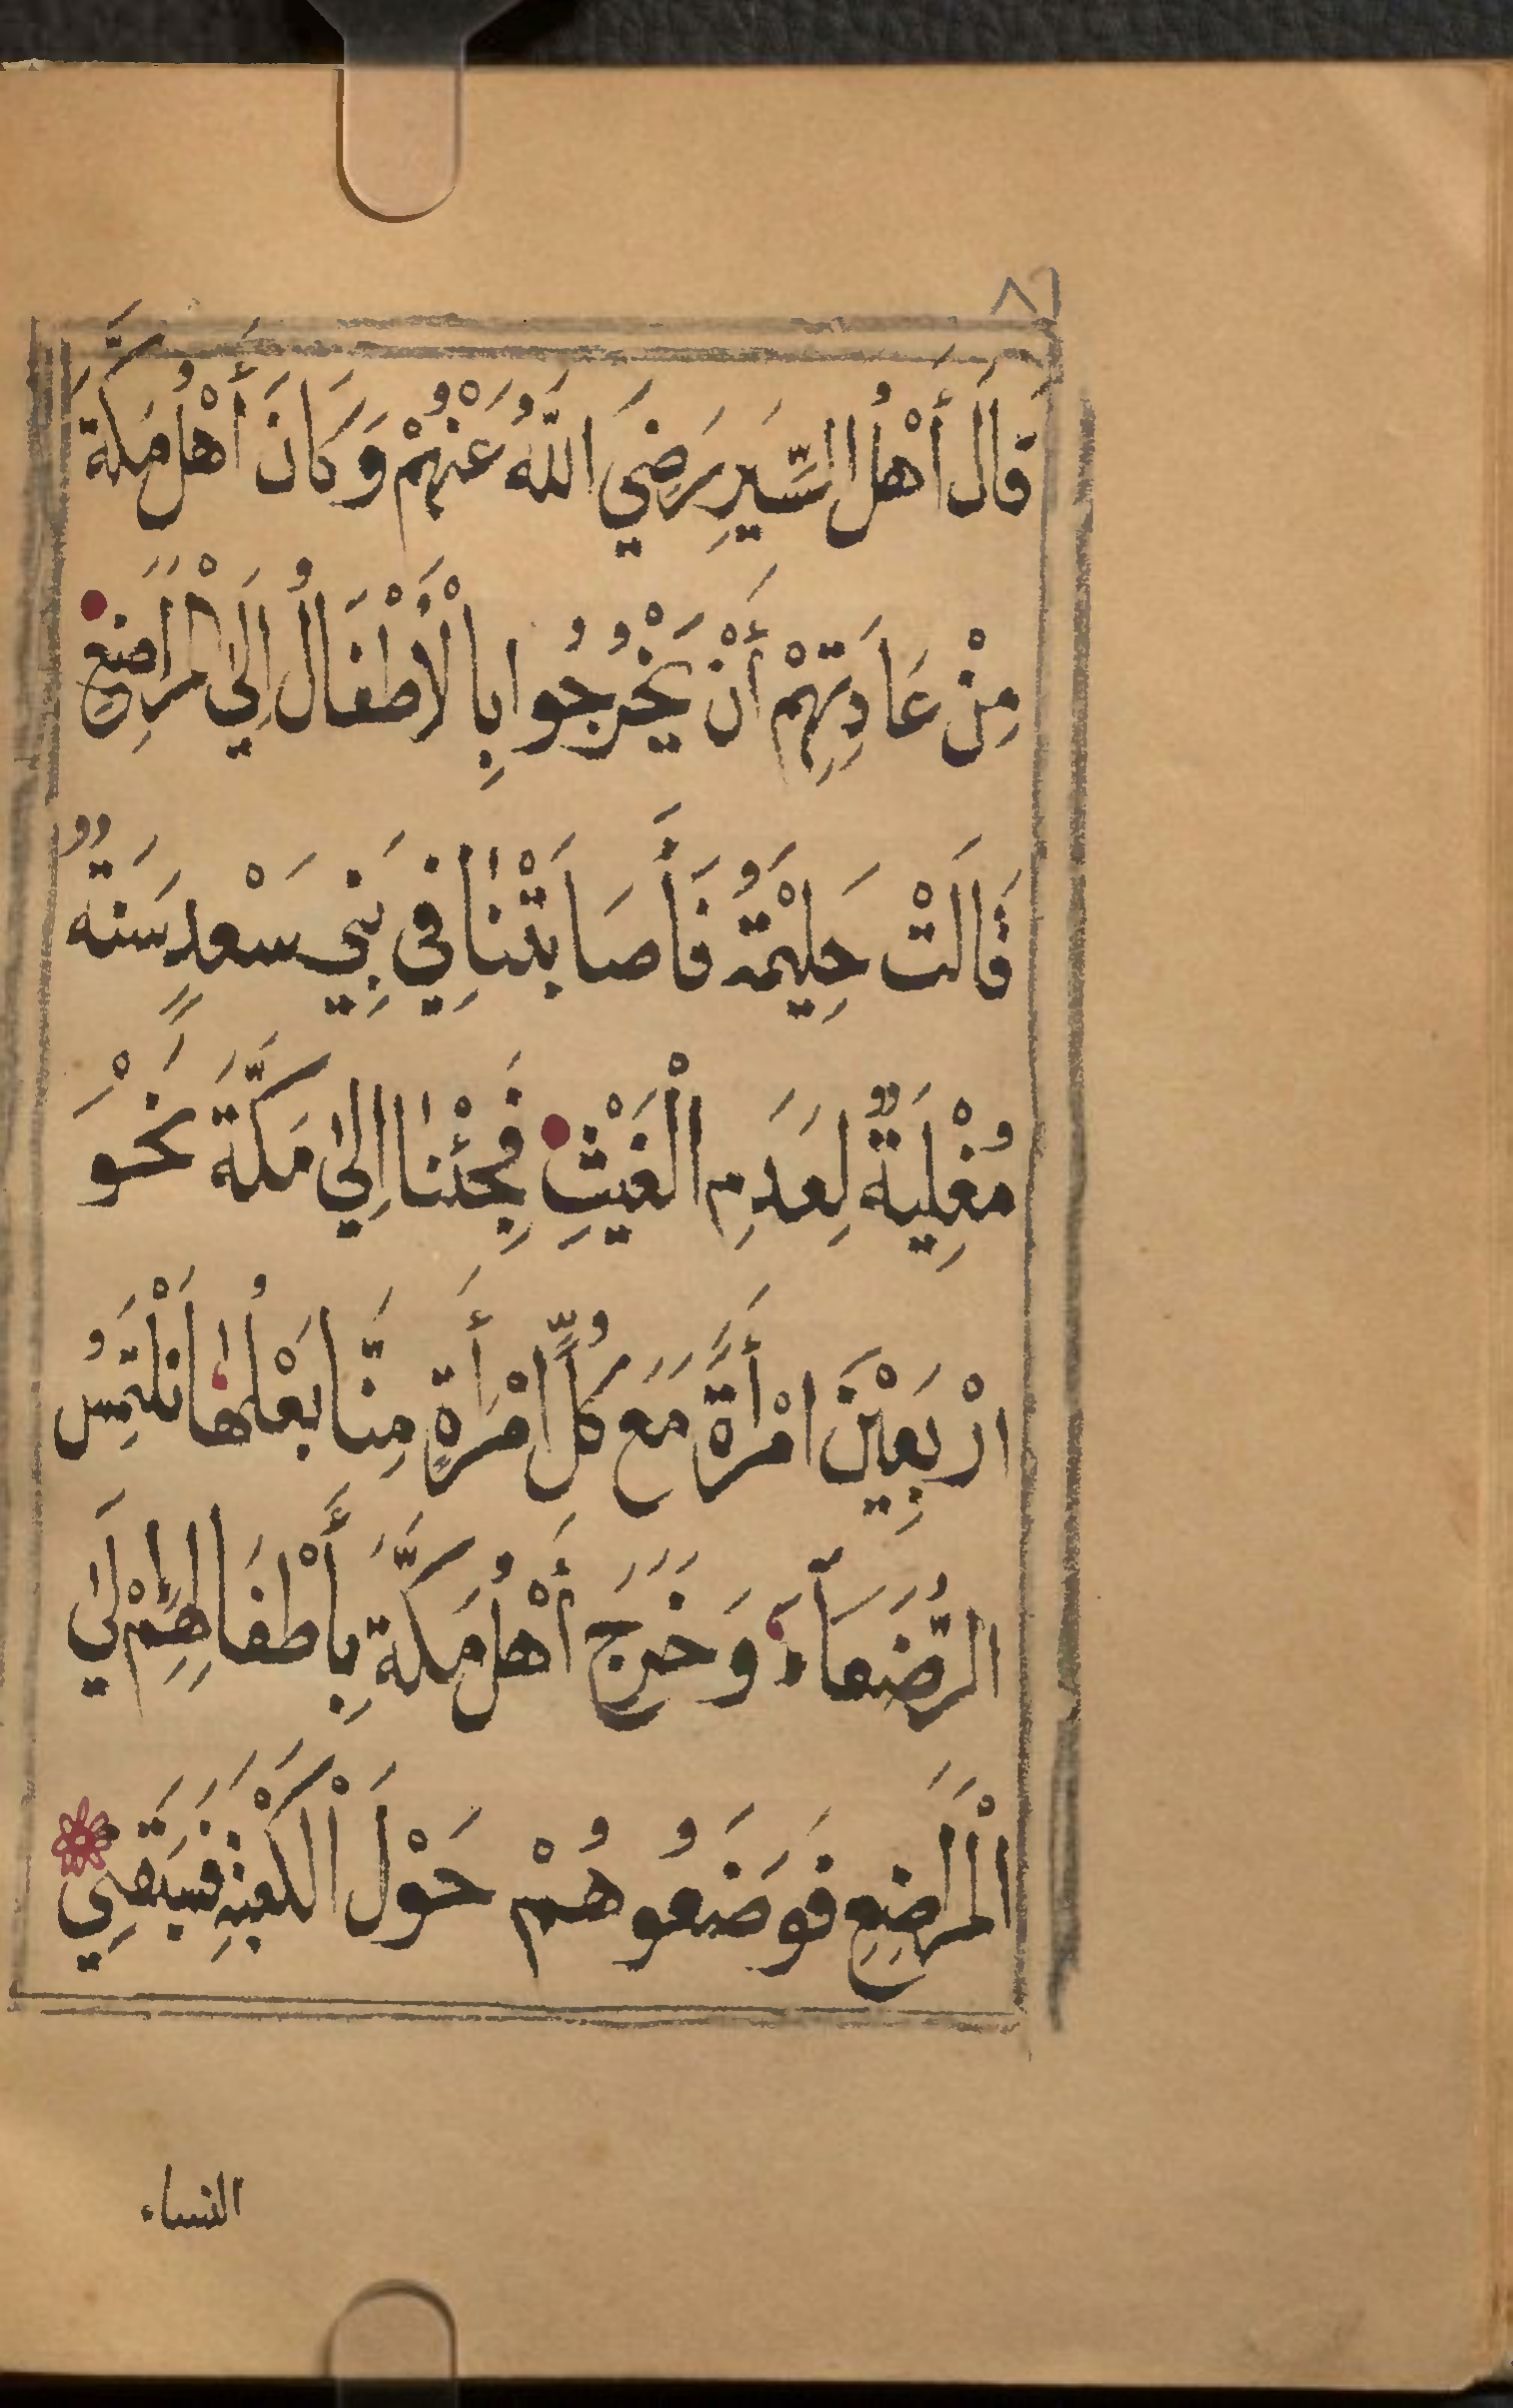 ٨١
قَالَ أَهْلُ السِّيَرِ رَضِيَ اللَّهُ عَنْهُمْ وَكَانَ أَهْلُ مَكَّةَ
مِنْ عَادَتِهِمْ أَنْ يَخْرُجُوا بِالْأَطْفَالُ إِلَى الْمَرَاضِعِ
قَالَتْ حَلِيْمَةُ فَأَصَابَتْنَا فِي بَنِي سَعْدٍ سَنَةٌ
مُغْلِيَةٌ لِعَدَمِ الْغَيْثِ فَجِئْنَا إِلَى مَكَّةَ نَحْوَ
ارْبَعِيْنَ امْرَأَةً مَعَ كُلِّ امْرَأَةٍ مِنَّا بَعْلُهَا نَلْتَمِسُ
الرُّضَعَآءَ وَخَرَجَ أَهْلُ مَكَّةَ بِأَطْفَالِهِمْ إِلَى
الْمَرَاضِعِ فَوَضَعُوهُمْ حَوْلَ الْكَعْبَةِ فَسَبَقَنِي
النساء